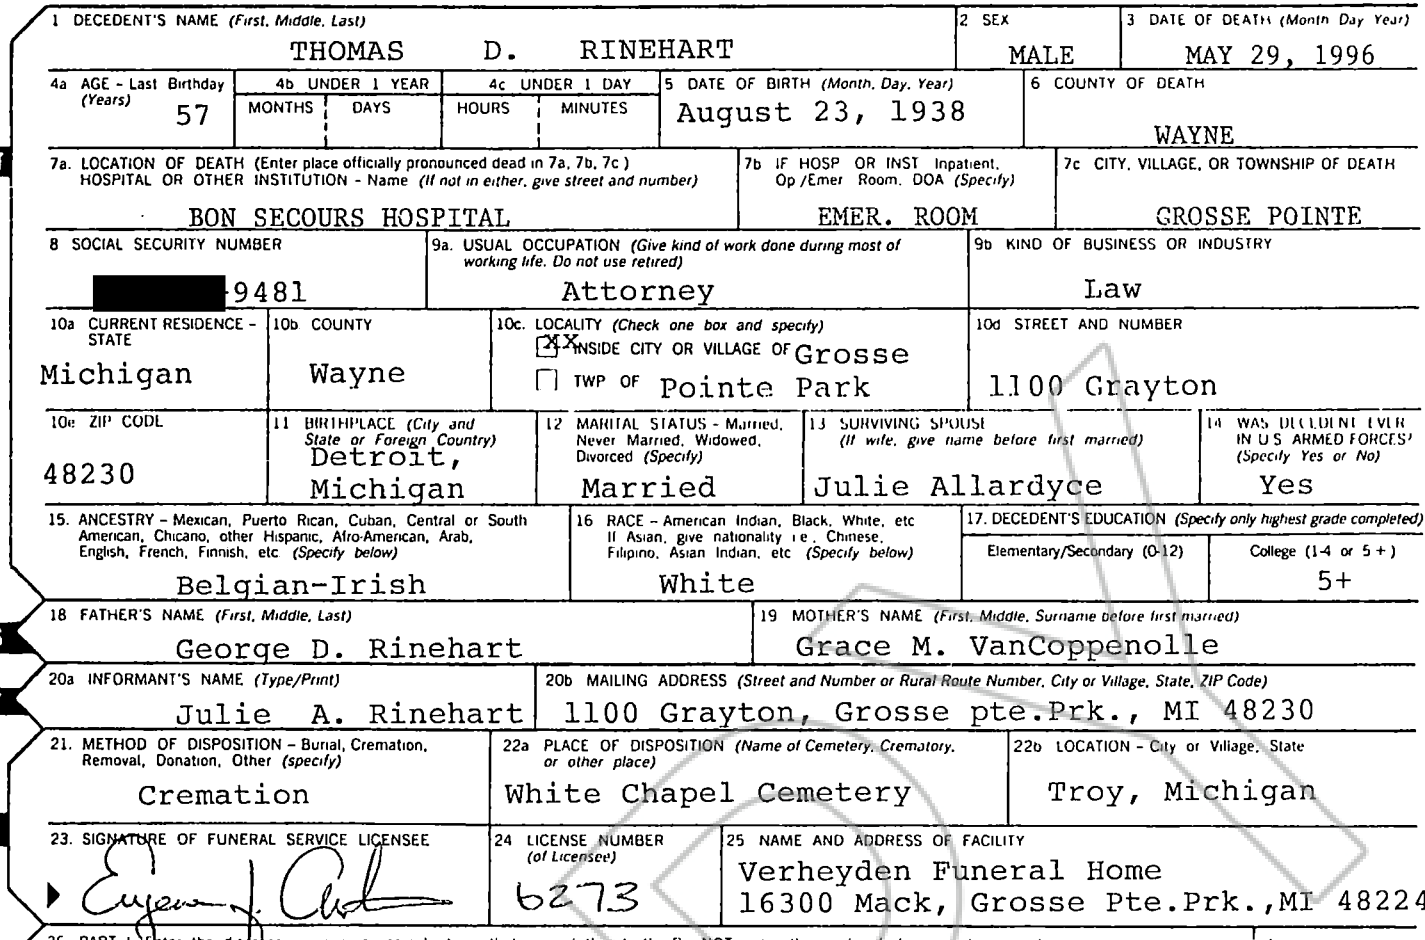 1 DECEDENT'S NAME (First, Middle, Last)
THOMAS D. RINEHART
2 SEX
MALE
3 DATE OF DEATH (Month Day Year)
MAY 29, 1996
4a AGE - Last Birthday
(Years)
57
4b UNDER 1 YEAR
MONTHS DAYS
4c UNDER 1 DAY
HOURS MINUTES
5 DATE OF BIRTH (Month, Day, Year)
August 23, 1938
6 COUNTY OF DEATH
WAYNE
7a. LOCATION OF DEATH (Enter place officially pronounced dead in 7a, 7b, 7c )
HOSPITAL OR OTHER INSTITUTION - Name (If not in either, give street and number)
BON SECOURS HOSPITAL
7b IF HOSP OR INST Inpatient,
Op /Emer Room, DOA (Specify)
EMER. ROOM
7c CITY, VILLAGE, OR TOWNSHIP OF DEATH
GROSSE POINTE
8 SOCIAL SECURITY NUMBER
-9481
9a. USUAL OCCUPATION (Give kind of work done during most of
working life. Do not use retired)
Attorney
9b KIND OF BUSINESS OR INDUSTRY
Law
10a CURRENT RESIDENCE -
STATE
Michigan
10b COUNTY
Wayne
10c. LOCALITY (Check one box and specify)
XX INSIDE CITY OR VILLAGE OF Grosse
TWP OF Pointe Park
10d STREET AND NUMBER
1100 Grayton
10e ZIP CODE
48230
11 BIRTHPLACE (City and
State or Foreign Country)
Detroit,
Michigan
12 MARITAL STATUS - Married,
Never Married, Widowed,
Divorced (Specify)
Married
13 SURVIVING SPOUSE
(If wife, give name before first married)
Julie Allardyce
14 WAS DECEDENT EVER
IN U S ARMED FORCES?
(Specify Yes or No)
Yes
15. ANCESTRY - Mexican, Puerto Rican, Cuban, Central or South
American, Chicano, other Hispanic, Afro-American, Arab,
English, French, Finnish, etc (Specify below)
Belgian-Irish
16 RACE - American Indian, Black, White, etc
If Asian, give nationality i e, Chinese,
Filipino, Asian Indian, etc (Specify below)
White
17. DECEDENT'S EDUCATION (Specify only highest grade completed)
Elementary/Secondary (0-12)
College (1-4 or 5 + )
5+
18 FATHER'S NAME (First, Middle, Last)
George D. Rinehart
19 MOTHER'S NAME (First, Middle, Surname before first married)
Grace M. VanCoppenolle
20a INFORMANT'S NAME (Type/Print)
Julie A. Rinehart
20b MAILING ADDRESS (Street and Number or Rural Route Number, City or Village, State, ZIP Code)
1100 Grayton, Grosse pte.Prk., MI 48230
21. METHOD OF DISPOSITION - Burial, Cremation,
Removal, Donation, Other (specify)
Cremation
22a PLACE OF DISPOSITION (Name of Cemetery, Crematory,
or other place)
White Chapel Cemetery
22b LOCATION - City or Village, State
Troy, Michigan
23. SIGNATURE OF FUNERAL SERVICE LICENSEE
24 LICENSE NUMBER
(of Licensee)
6273
25 NAME AND ADDRESS OF FACILITY
Verheyden Funeral Home
16300 Mack, Grosse Pte.Prk.,MI 48224